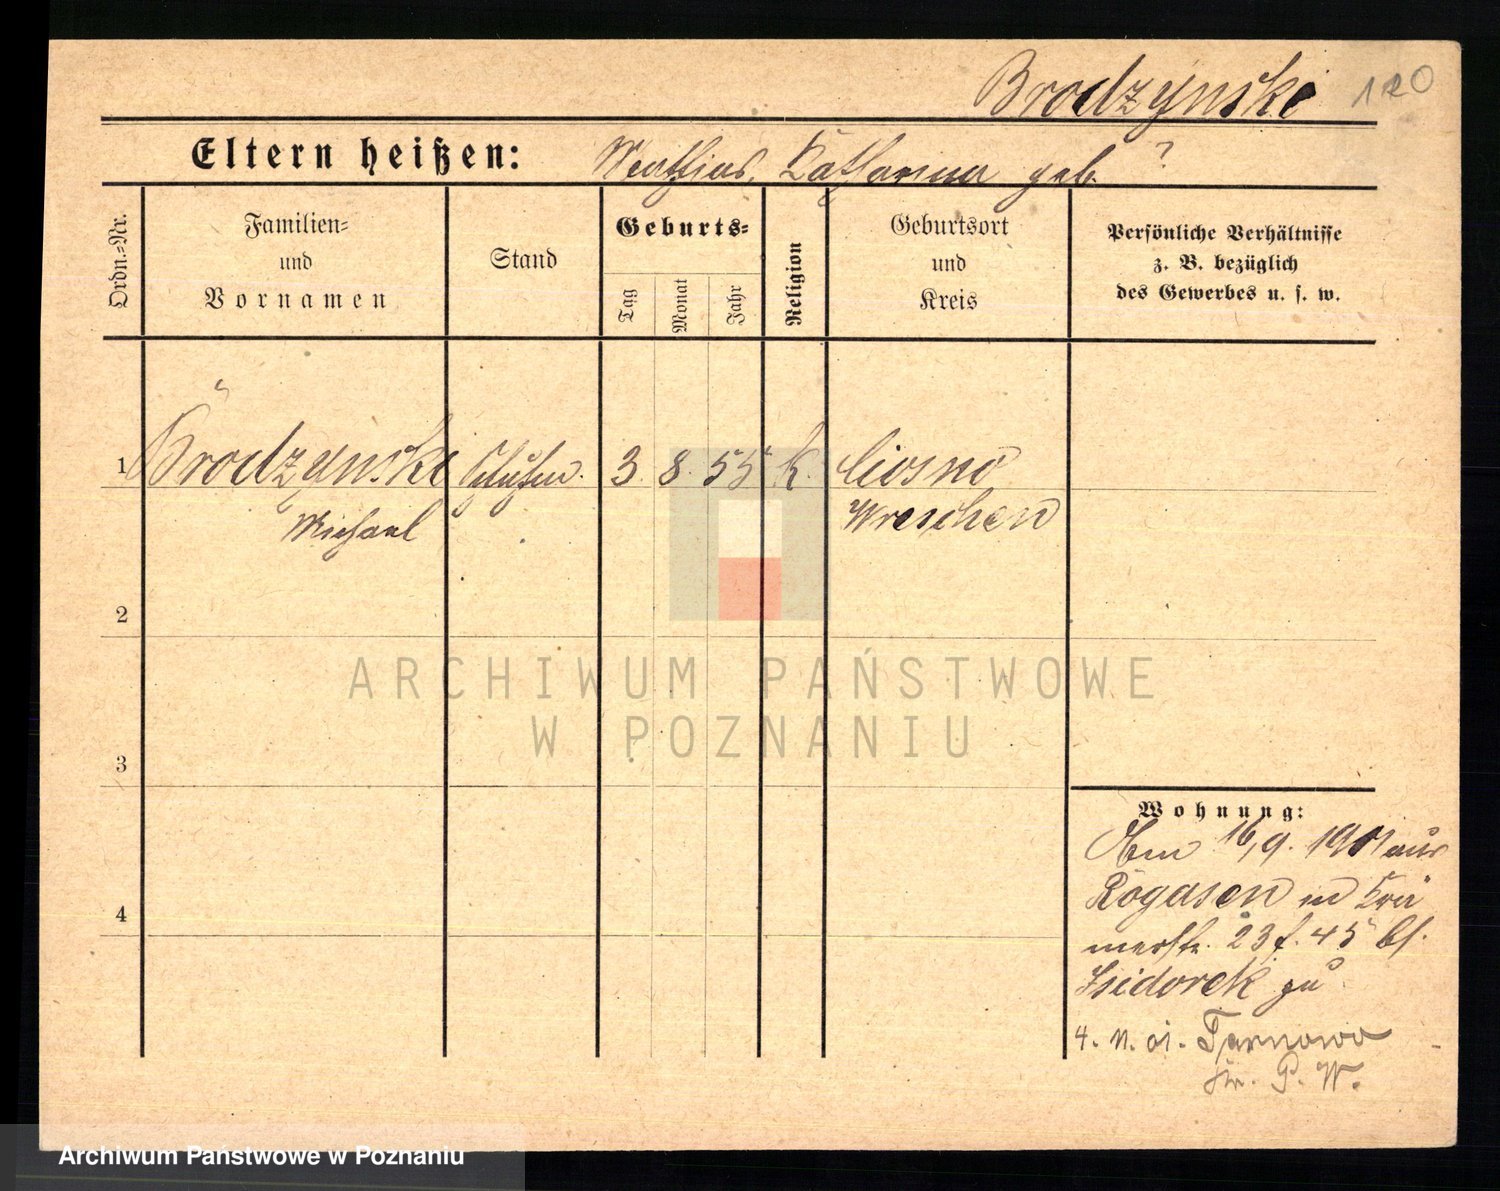 Brodzynski 120
Eltern heißen: Mathias, Katharina geb. ?
Ordn.=Nr.
Familien=
und
Vornamen
Stand
Geburts=
Tag
Monat
Jahr
Religion
Geburtsort
und
Kreis
Persönliche Verhältnisse
z. B. bezüglich
des Gewerbes u. s. w.
1 Brodzynski 3. 8. 55 k. Ciosno
Michael Wreschen
2
3
4
Wohnung:
Am 16/9. 1901 aus
Rogasen in Krä
merstr. 23 f. 45 bf.
Isidorek zu
4. 11. 01. Tarnowo
Kr. P. W.
ARCHIWUM PAŃSTWOWE
W POZNANIU
Archiwum Państwowe w Poznaniu